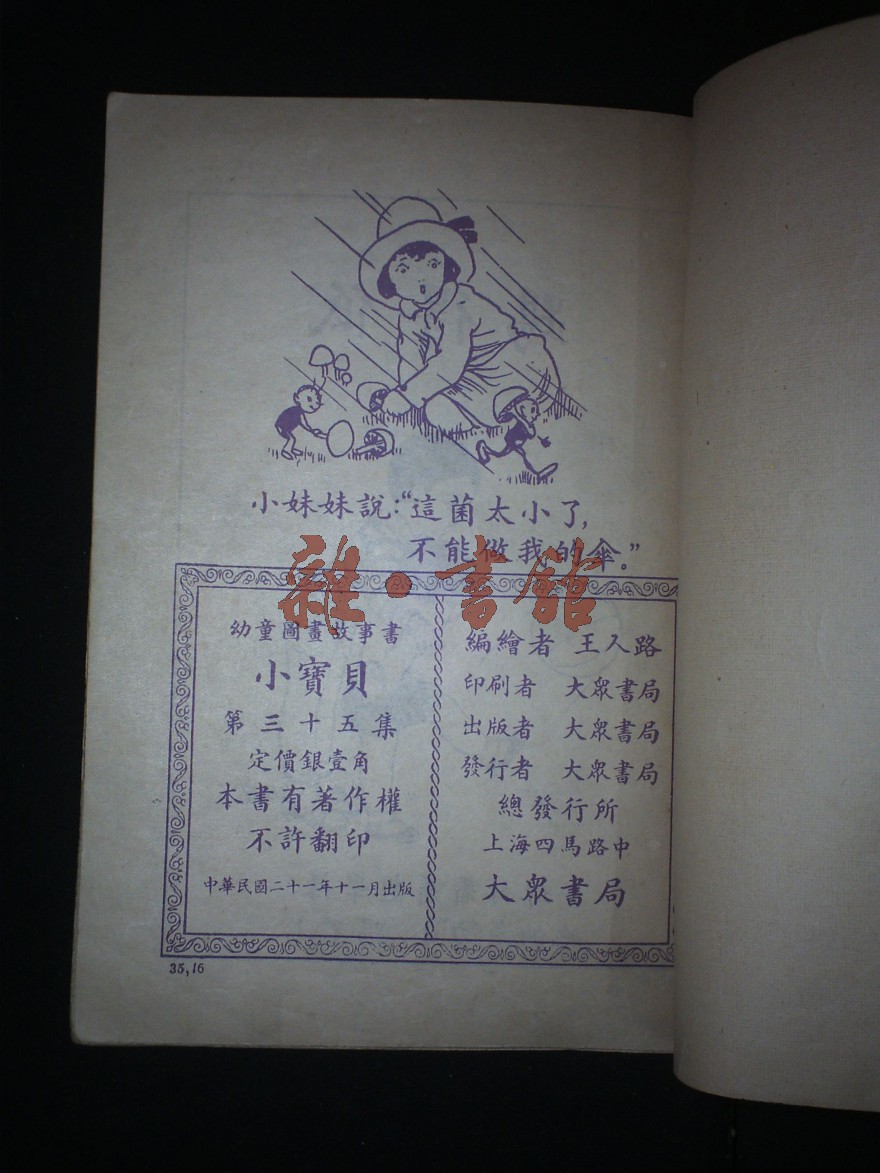 小妹妹說：“這菌太小了，
不能做我的傘。”
雜·書館
幼童圖畫故事書
小寶貝
第三十五集
定價銀壹角
本書有著作權
不許翻印
中華民國二十一年十一月出版
編繪者 王人路
印刷者 大眾書局
出版者 大眾書局
發行者 大眾書局
總發行所
上海四馬路中
大眾書局
35,16